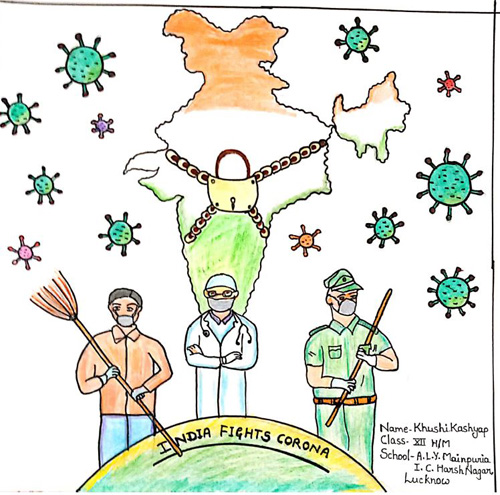 INDIA FIGHTS CORONA
Name- Khushi Kashyap
Class- XII H/M
School- A.L.Y. Mainpuria
I. C. Harsh Nagar,
Lucknow